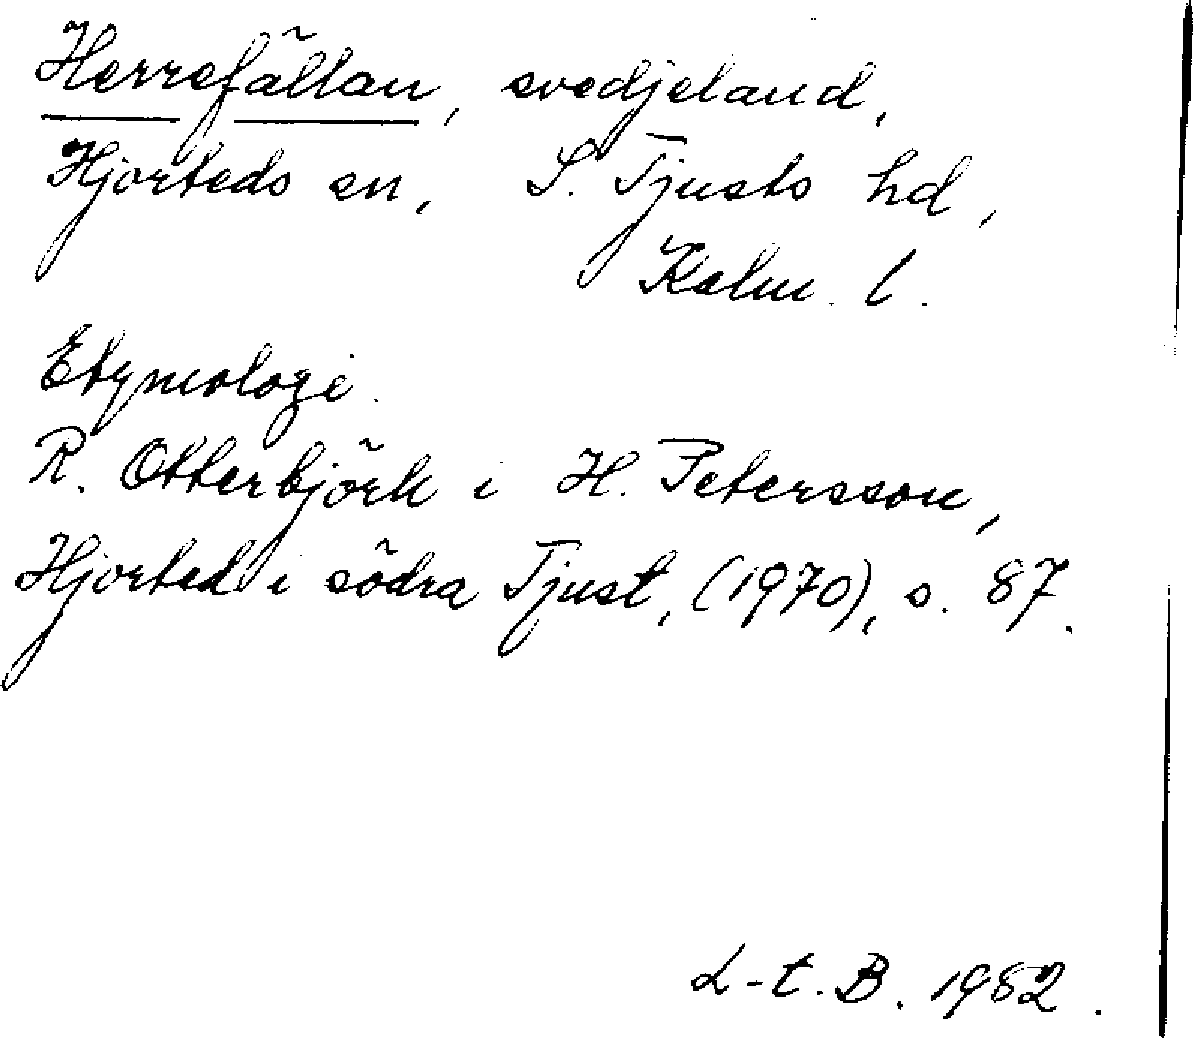 Herrefällan, svedjeland,
Hjorteds sn, S. Tjusts hd,
Kalm. l.
Etymologi.
R. Otterbjörk i H. Petersson,
Hjorted i södra Tjust, (1970), s. 87.
L-t. B. 1982.